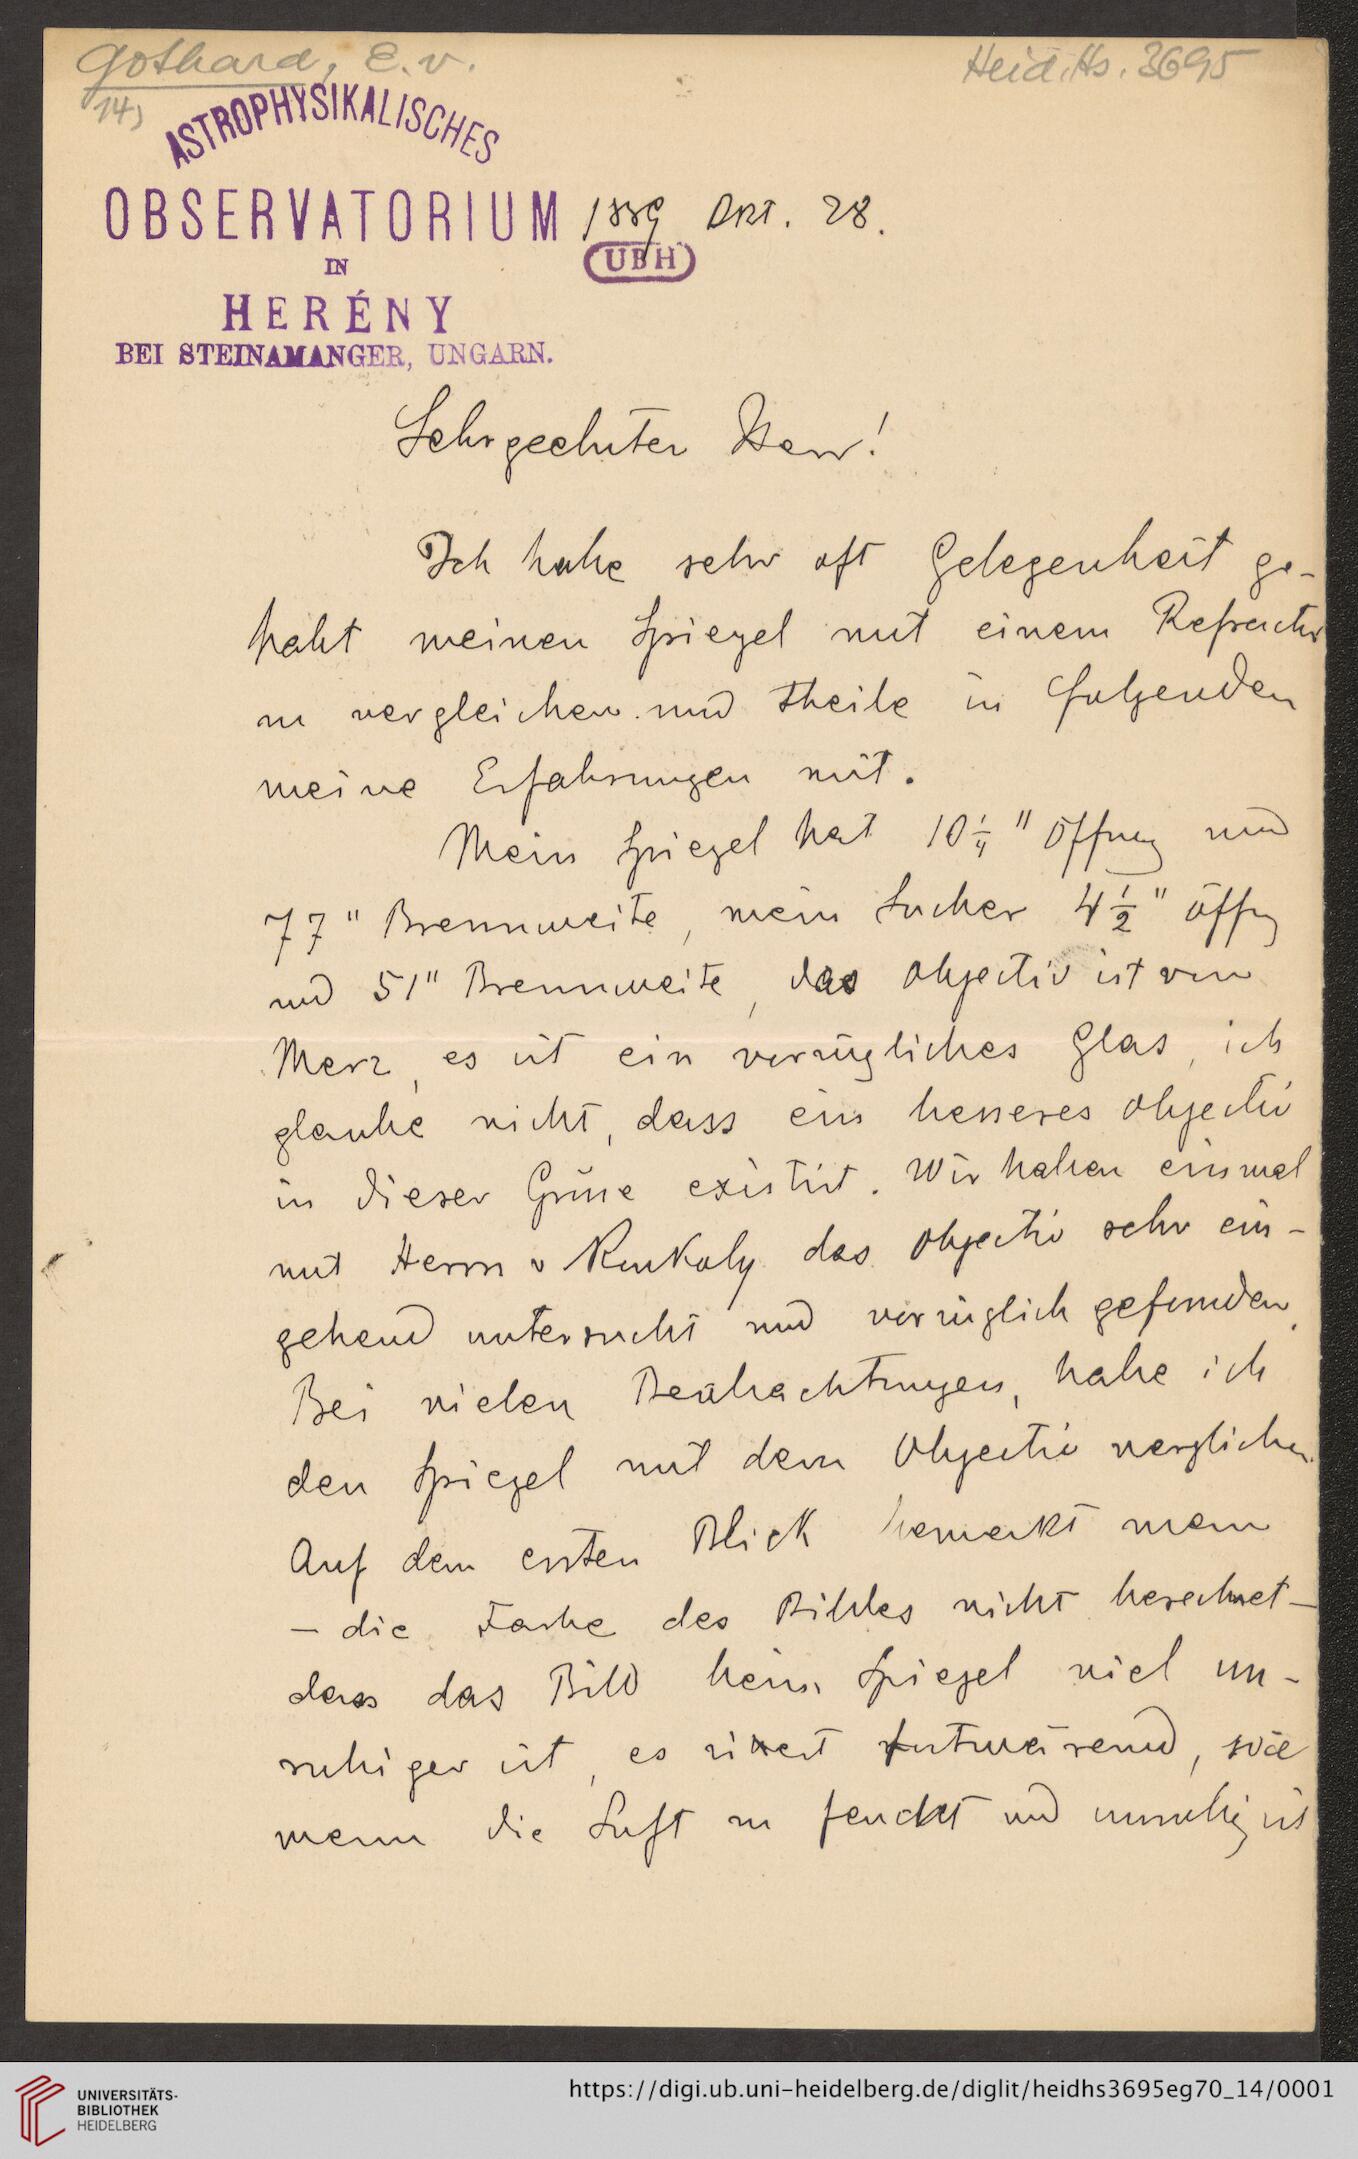 Gothard, E. v.
Heid. Hs. 3695
14)
ASTROPHYSIKALISCHES
OBSERVATORIUM
1889 Okt. 28.
IN
UBH
HERÉNY
BEI STEINAMANGER, UNGARN.
Sehrgeehrter Herr!
Ich habe sehr oft Gelegenheit ge-
habt meinen Spiegel mit einem Refractor
zu vergleichen und theile in folgenden
meine Erfahrungen mit.
Mein Spiegel hat 10 1/4" Öffnung und
77" Brennweite, mein Sucher 4 1/2" Öffng
und 51" Brennweite, das Objectiv ist von
Merz, es ist ein vorzügliches Glas, ich
glaube nicht, dass ein besseres Objectiv
in dieser Grösse existirt. Wir haben einmal
mit Herrn v Konkoly das Objectiv sehr ein-
gehend untersucht und vorzüglich gefunden.
Bei vielen Beobachtungen, habe ich
den Spiegel mit dem Objectiv verglichen.
Auf dem ersten Blick bemerkt man
— die Farbe des Bildes nicht berechnet —
dass das Bild beim Spiegel viel un-
ruhiger ist, es zittert fortwärend, wie
wenn die Luft zu feucht und unruhig ist
UNIVERSITÄTS-
BIBLIOTHEK
HEIDELBERG
https://digi.ub.uni-heidelberg.de/diglit/heidhs3695eg70_14/0001